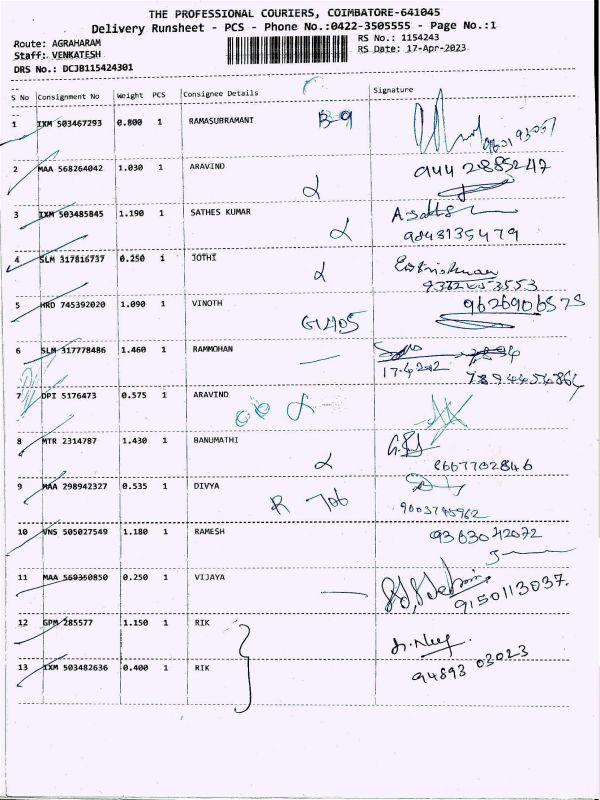 THE PROFESSIONAL COURIERS, COIMBATORE-641045
Delivery Runsheet - PCS - Phone No.:0422-3505555 - Page No.:1
Route: AGRAHARAM RS No.: 1154243
Staff: VENKATESH RS Date: 17-Apr-2023
DRS No.: DCJB115424301
S No Consignment No Weight PCS Consignee Details Signature
1 IXM 503467293 0.800 1 RAMASUBRAMANI B-9
2 MAA 568264042 1.030 1 ARAVIND 9442885247
3 IXM 503485845 1.190 1 SATHES KUMAR
9843135479
4 SLM 317816737 0.250 1 JOTHI
5 HRD 745392020 1.090 1 VINOTH 9626906575
6 SLM 317778486 1.460 1 RAMMOHAN
7 DPI 5176473 0.575 1 ARAVIND
8 MTR 2314787 1.430 1 BANUMATHI
8667702846
9 MAA 298942327 0.535 1 DIVYA
R 706
10 VNS 505027549 1.180 1 RAMESH 9363042072
11 MAA 569350850 0.250 1 VIJAYA
9150113037.
12 GPM 285577 1.150 1 RIK
13 IXM 503482636 0.400 1 RIK 94893 03023